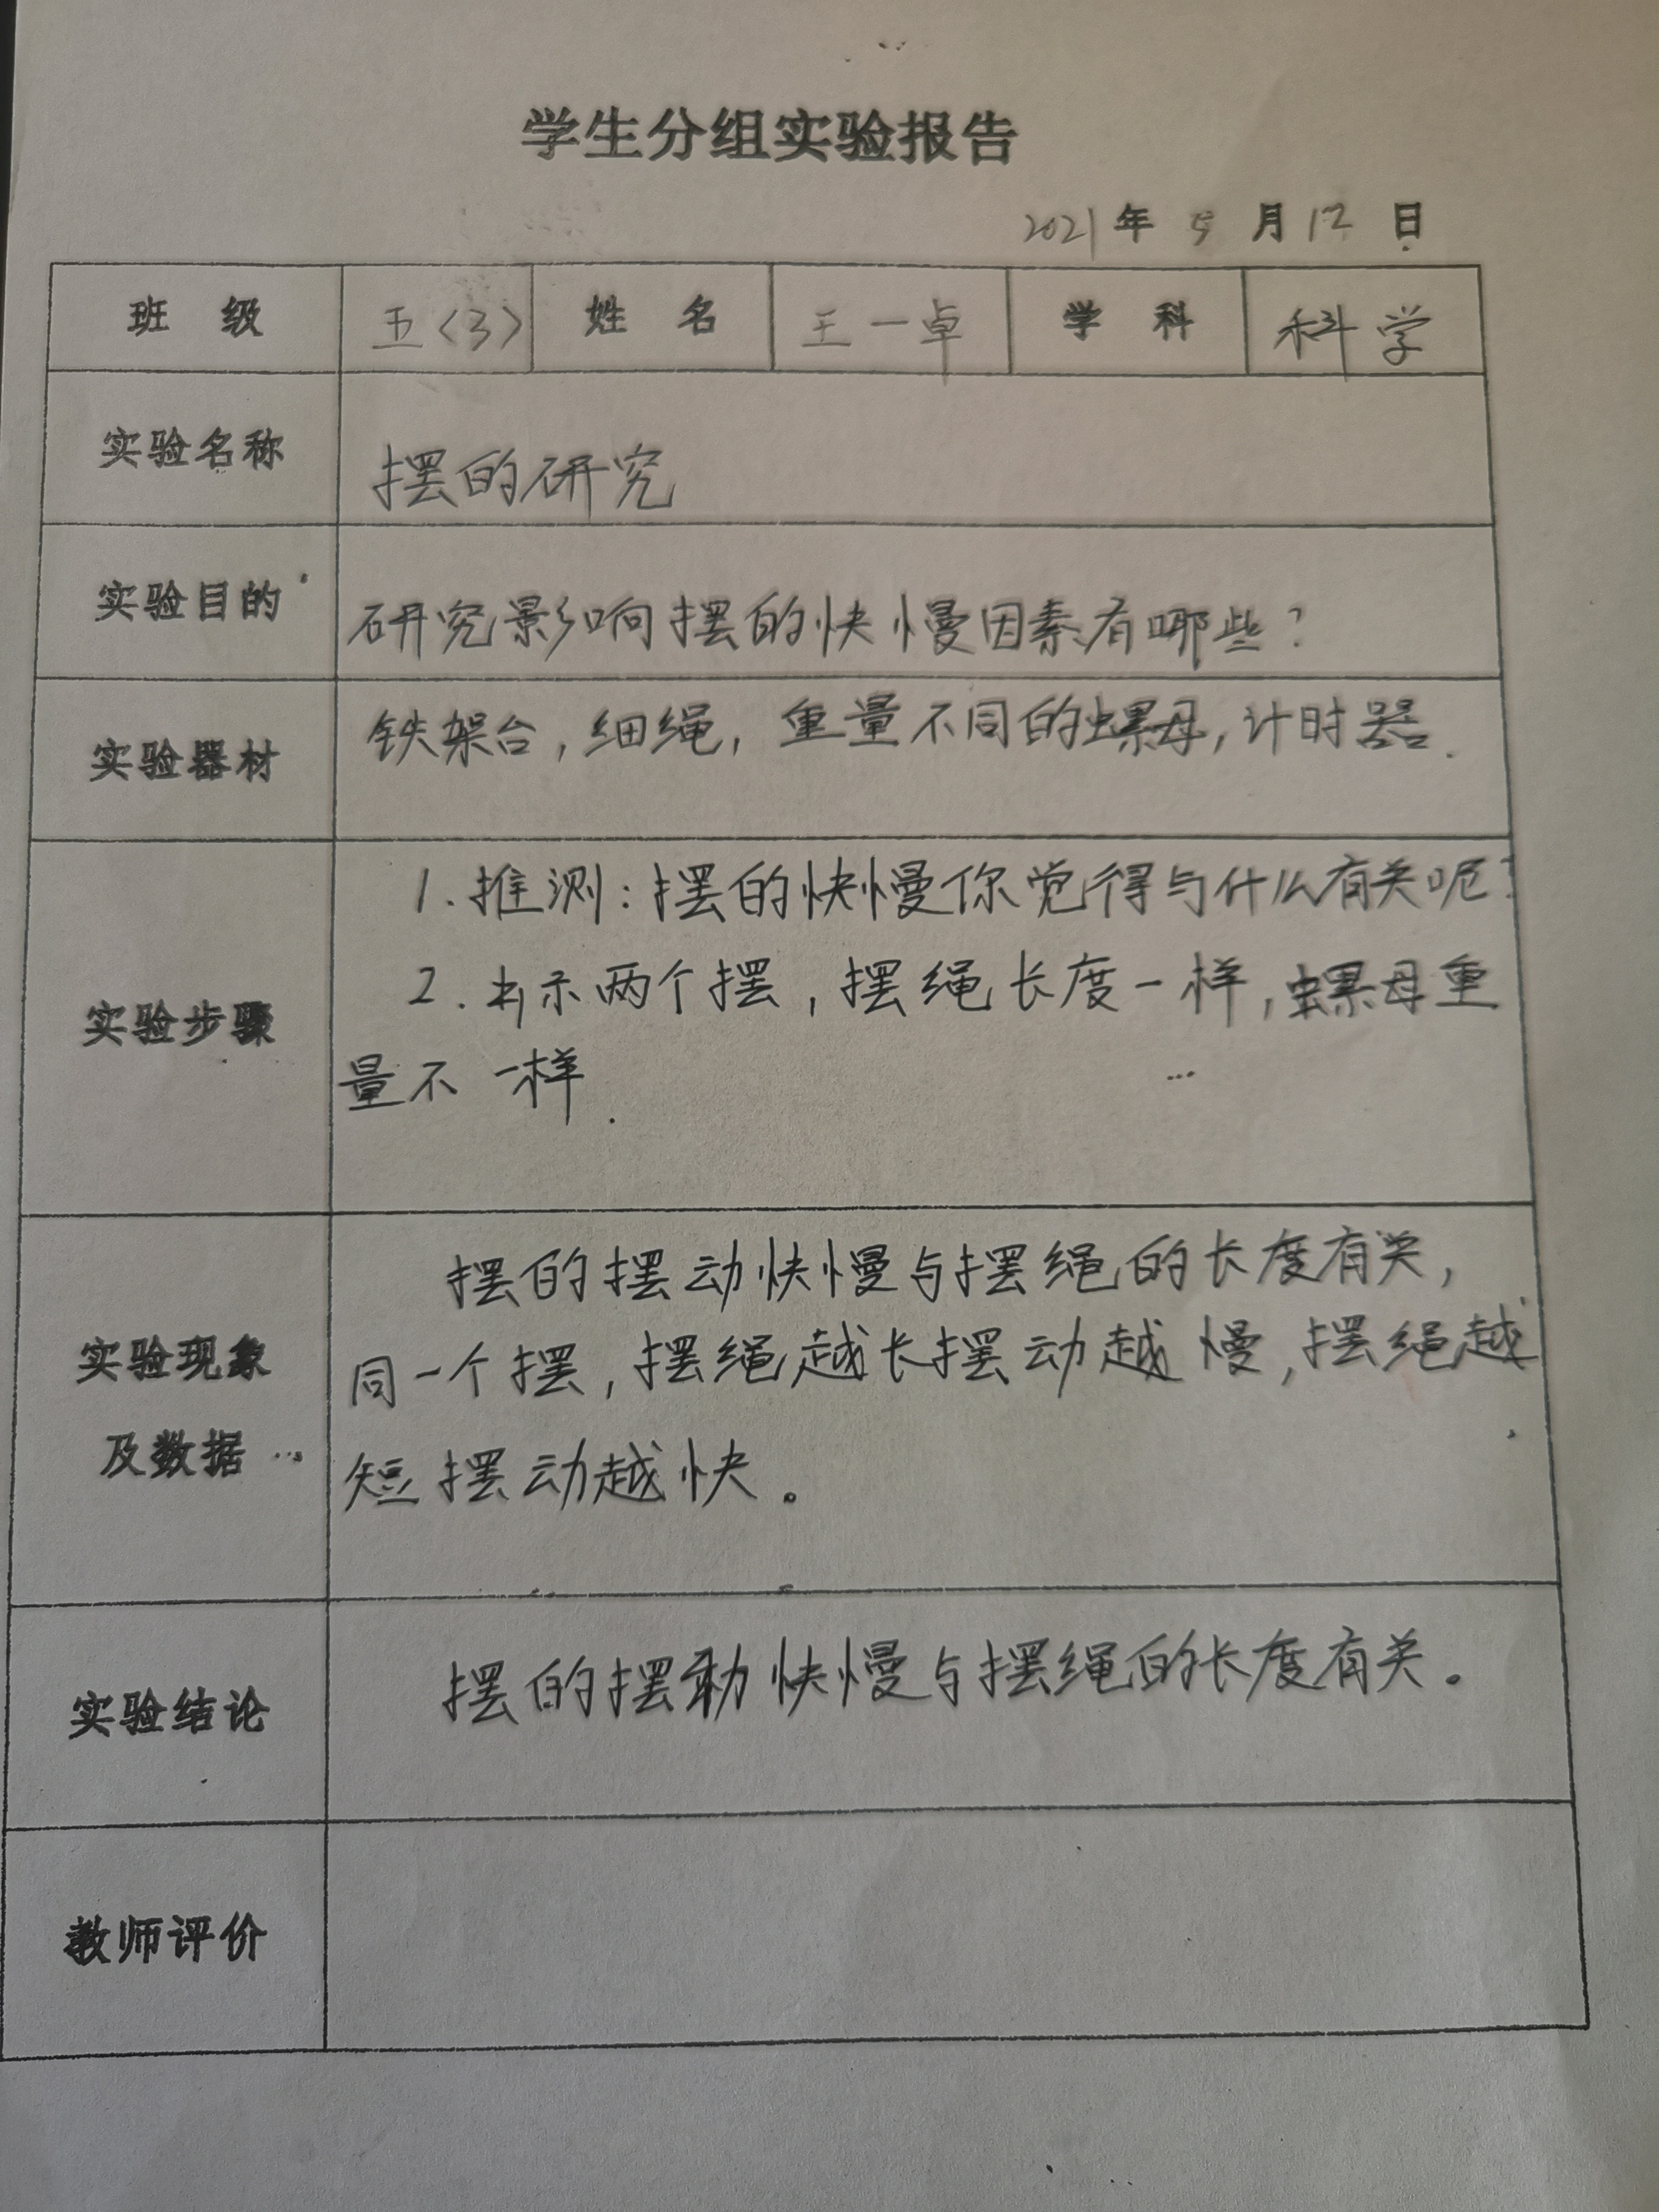 学生分组实验报告
2021年 5 月 12 日
班 级 五〈3〉 姓 名 王一卓 学 科 科学
实验名称 摆的研究
实验目的 研究影响摆的快慢因素有哪些?
实验器材 铁架台,细绳,重量不同的螺母,计时器.
实验步骤
1.推测:摆的快慢你觉得与什么有关呢?
2.出示两个摆,摆绳长度一样,螺母重
量不一样.
实验现象
及数据
摆的摆动快慢与摆绳的长度有关,
同一个摆,摆绳越长摆动越慢,摆绳越
短摆动越快。
实验结论 摆的摆动快慢与摆绳的长度有关。
教师评价